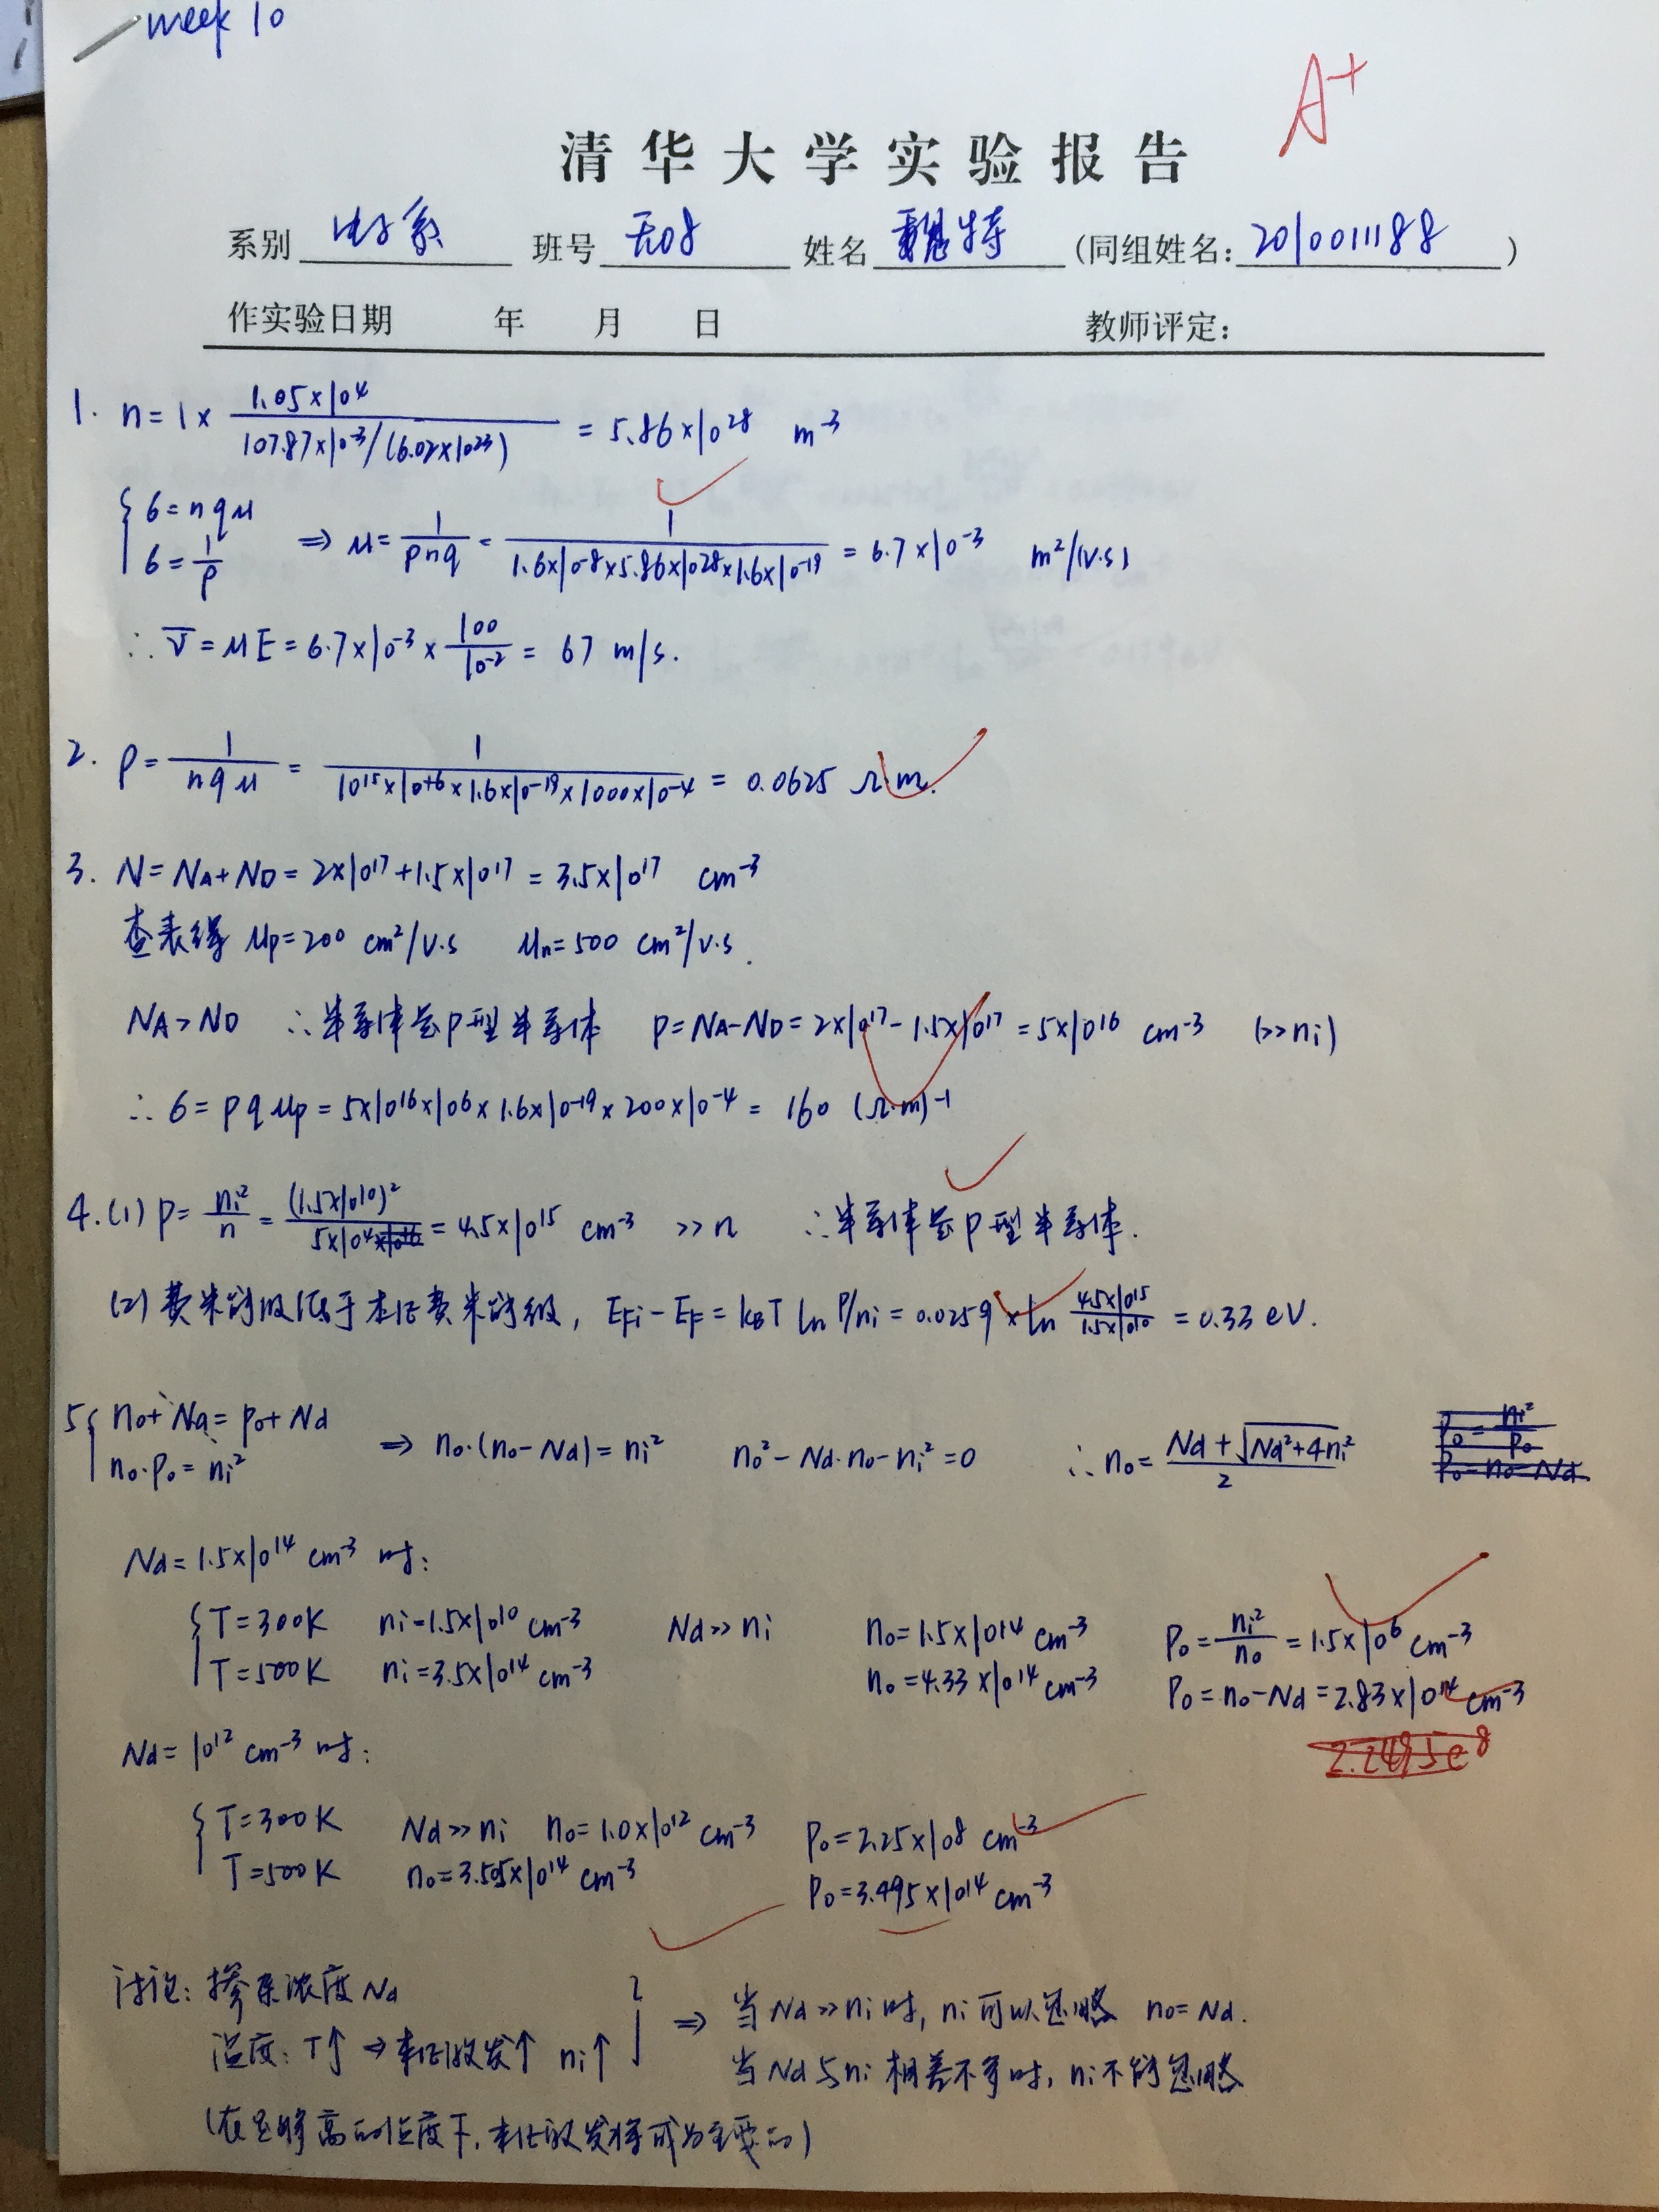 week 10
A+
清华大学实验报告
系别 电子系 班号 无08 姓名 魏特 (同组姓名: 2010011188 )
作实验日期 年 月 日 教师评定:
1. n = 1 × 1.05×10^4 / (107.87×10^-3/(6.02×10^23)) = 5.86×10^28 m^-3
{ σ = nqμ σ = 1/ρ ⇒ μ = 1/(ρnq) = 1/(1.6×10^-8×5.86×10^28×1.6×10^-19) = 6.7×10^-3 m²/(V·s)
∴ v̄ = μE = 6.7×10^-3 × 100/10^-2 = 67 m/s.
2. ρ = 1/(nqμ) = 1/(10^15×10^+6×1.6×10^-19×1000×10^-4) = 0.0625 Ω·m.
3. N = NA+ND = 2×10^17+1.5×10^17 = 3.5×10^17 cm^-3
查表得 μp=200 cm²/V·s μn=500 cm²/V·s.
NA>ND ∴半导体是p型半导体 p=NA-ND=2×10^17-1.5×10^17=5×10^16 cm^-3 (>>ni)
∴ σ = pqμp = 5×10^16×10^6×1.6×10^-19×200×10^-4 = 160 (Ω·m)^-1
4. (1) p = ni²/n = (1.5×10^10)²/(5×10^4) = 4.5×10^15 cm^-3 >> n ∴半导体是p型半导体.
(2) 费米能级低于本征费米能级, EFi-EF = kBT ln p/ni = 0.0259 × ln (4.5×10^15/1.5×10^10) = 0.33 eV.
5 { n0+Na = p0+Nd n0·p0 = ni² ⇒ n0·(n0-Nd) = ni² n0²-Nd·n0-ni²=0 ∴ n0 = (Nd+√(Nd²+4ni²))/2 p0 = ni²/p0 p0=n0-Nd.
Nd=1.5×10^14 cm^-3 时:
{ T=300K ni=1.5×10^10 cm^-3 Nd>>ni n0=1.5×10^14 cm^-3 p0=ni²/n0=1.5×10^6 cm^-3
T=500K ni=3.5×10^14 cm^-3 n0=4.33×10^14 cm^-3 p0=n0-Nd=2.83×10^14 cm^-3
2.2495e8
Nd=10^12 cm^-3 时:
{ T=300K Nd>>ni n0=1.0×10^12 cm^-3 p0=2.25×10^8 cm^-3
T=500K n0=3.505×10^14 cm^-3 p0=3.495×10^14 cm^-3
讨论: 掺杂浓度Nd
温度: T↑ → 本征激发↑ ni↑ } ⇒ 当Nd>>ni时, ni可以忽略 n0=Nd.
当Nd与ni相差不多时, ni不能忽略
(在足够高的温度下, 本征激发将成为主要的)